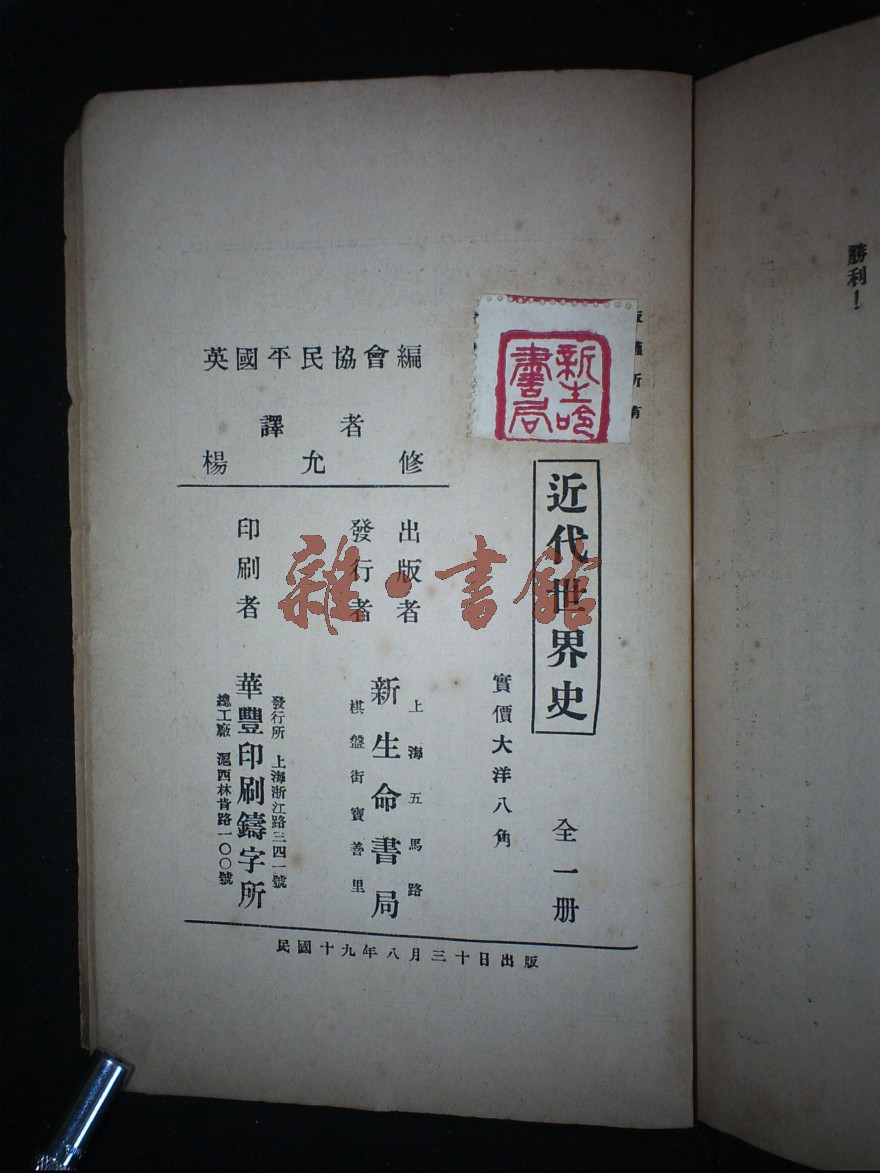 勝利！
版權所有
新生命
書局
近代世界史
全一册
實價大洋八角
英國平民協會編
譯者
楊允修
出版者
發行者
上海五馬路
新生命書局
棋盤街寶善里
印刷者
發行所 上海浙江路三四一號
華豐印刷鑄字所
總工廠 滬西林肯路一〇〇號
民國十九年八月三十日出版
雜·書館